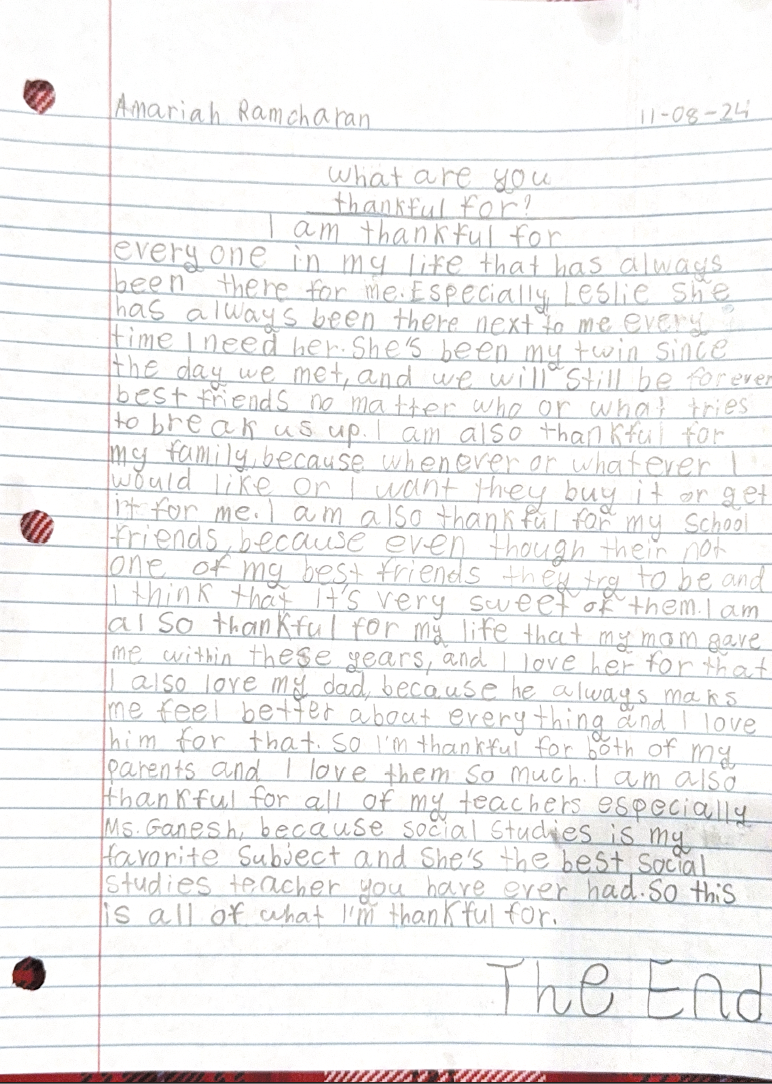 Amariah Ramcharan 11-08-24
what are you
thankful for?
I am thankful for
every one in my life that has always
been there for me. Especially, Leslie she
has always been there next to me every
time I need her. She's been my twin since
the day we met, and we will still be forever
best friends no matter who or what tries
to break us up. I am also thankful for
my family, because whenever or whatever I
would like or I want they buy it or get
it for me. I am also thankful for my school
friends, because even though their not
one of my best friends they try to be and
I think that it's very sweet of them. I am
also thankful for my life that my mom gave
me within these years, and I love her for that
I also love my dad, because he always maks
me feel better about every thing and I love
him for that. So I'm thankful for both of my
parents and I love them so much. I am also
thankful for all of my teachers especially
Ms. Ganesh, because social studies is my
favorite subject and she's the best social
studies teacher you have ever had. So this
is all of what I'm thankful for.
The End